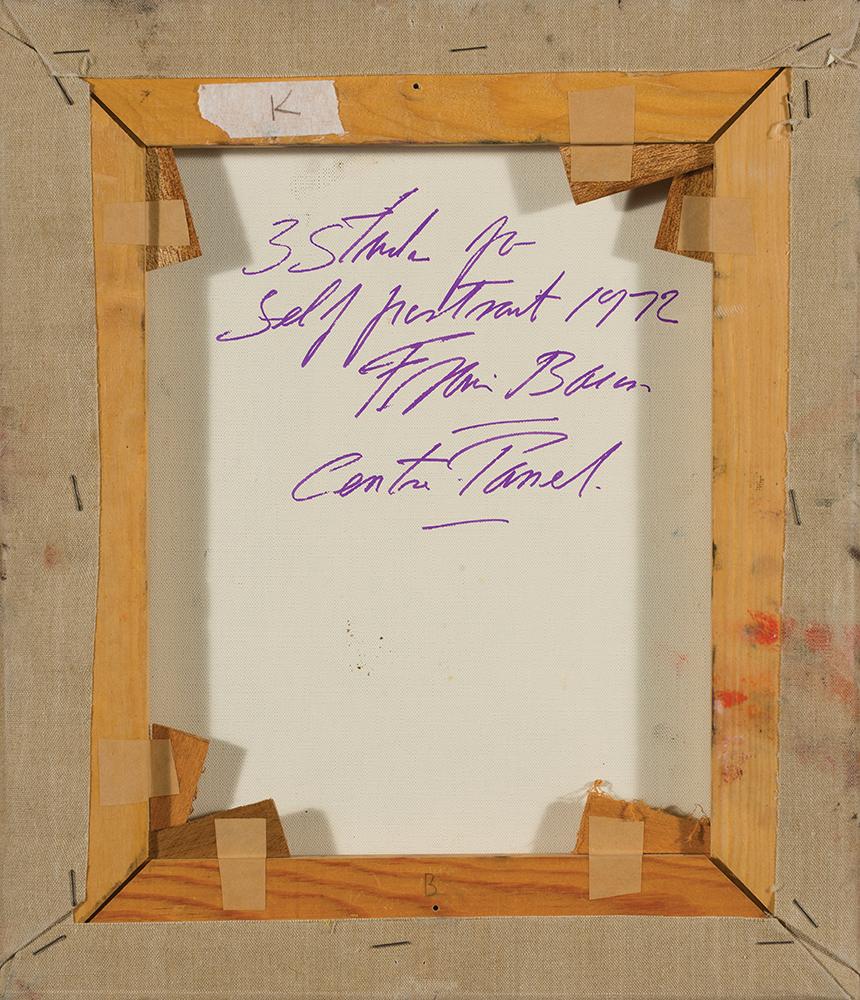 K
3 Studies for
Self portrait 1972
Francis Bacon
Centre Panel.
B